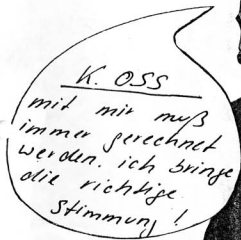 K. OSS
mit mir muß
immer gerechnet
werden. ich bringe
die richtige
Stimmung!